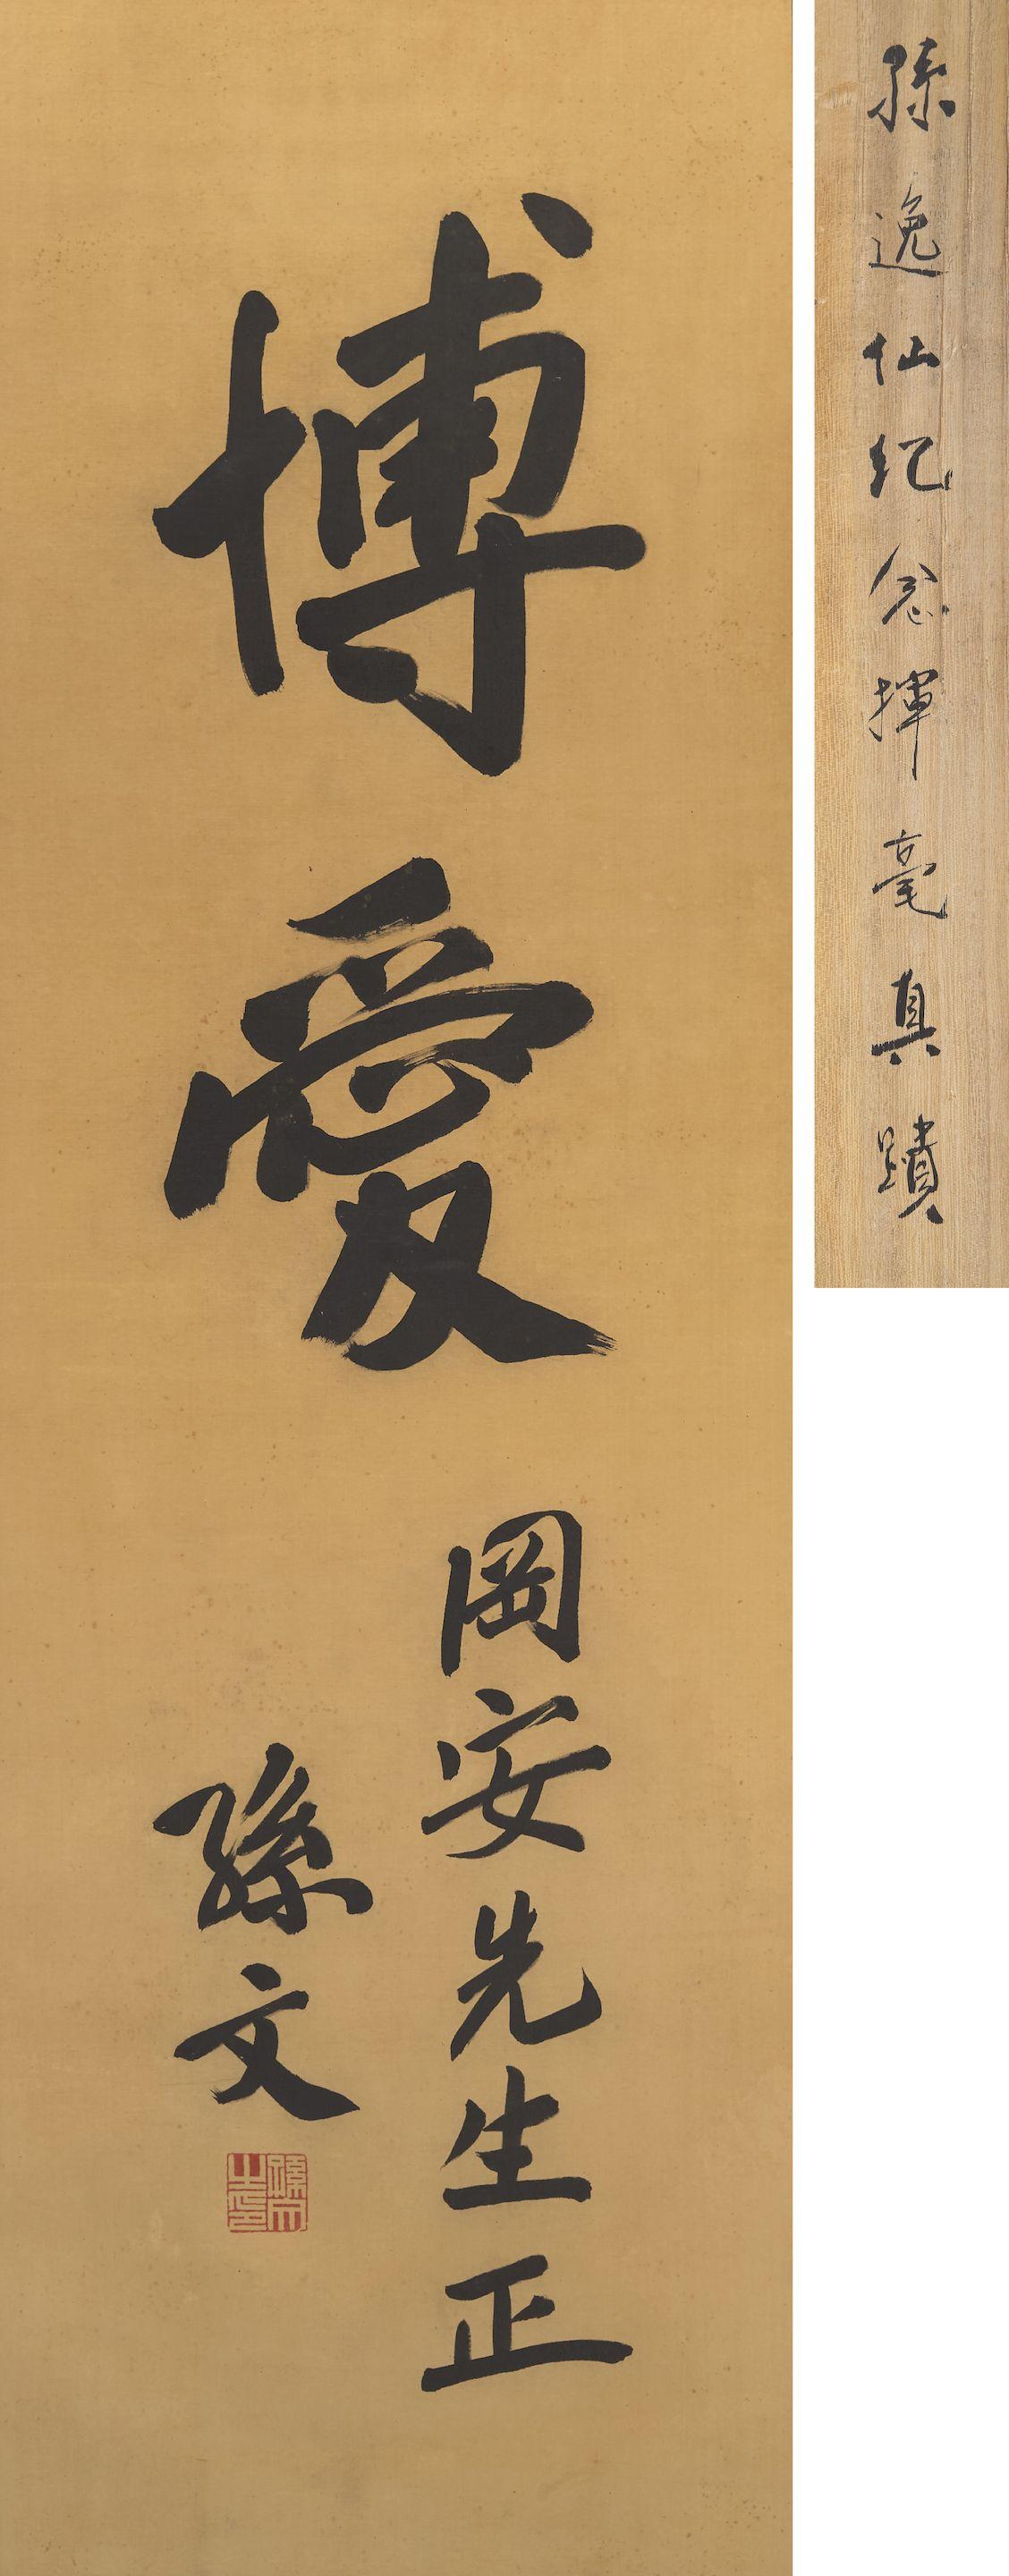 孫逸仙紀念揮毫真蹟
博愛
岡安先生正
孫文
孫文之印